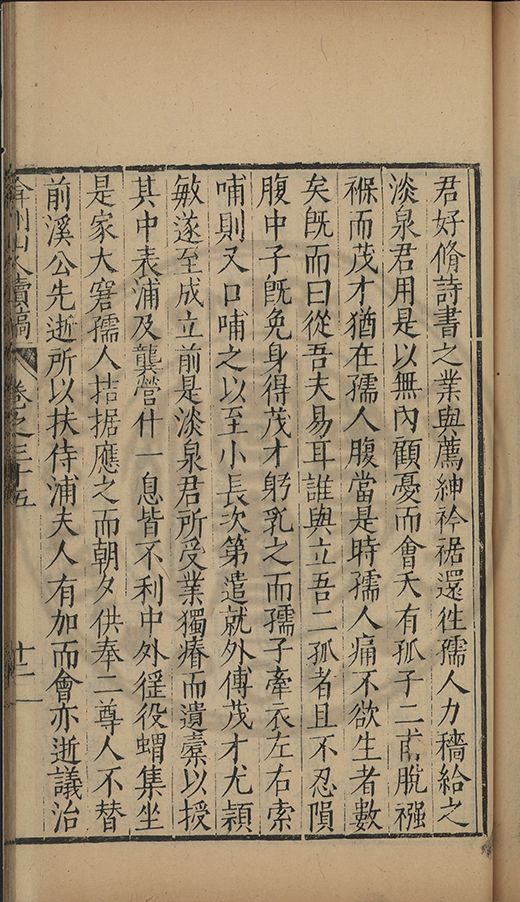 君好脩詩書之業與薦紳衿裾還徃孺人力穡給之
淡泉君用是以無內顧憂而會夭有孤子二甫脫襁
褓而茂才猶在孺人腹當是時孺人痛不欲生者數
矣旣而曰從吾夫易耳誰與立吾二孤者且不忍隕
腹中子旣免身得茂才躬乳之而孺子牽衣左右索
哺則又口哺之以至小長次第遣就外傅茂才尤頴
敏遂至成立前是淡泉君所受業獨瘠而遺橐以授
其中表浦及龔營什一息皆不利中外徭役蝟集坐
是家大窘孺人拮据應之而朝夕供奉二尊人不替
前溪公先逝所以扶侍浦夫人有加而會亦逝議治
弇州山人續稿 卷之三十五 十二